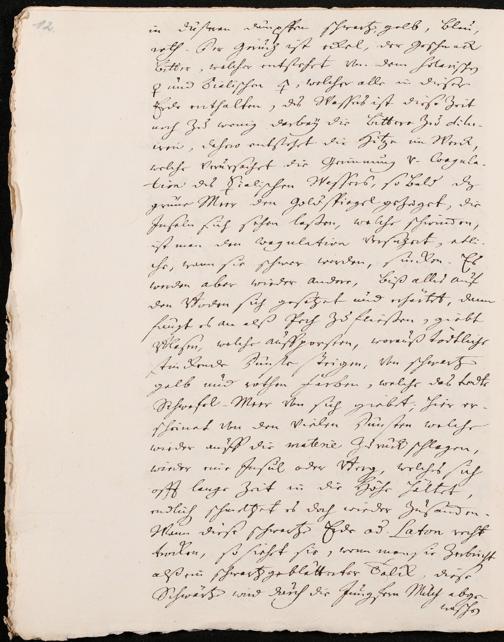 12
in diesen dämpffen schwartz, gelb, blau,
roth. Der Geruch ist eckel, der Geschmack
bitter, welcher entstehet von dem Solarischen
🜍 und 🜍, welcher alle in dieser
Erde enthalten, des Wassers ist diese Zeit
noch zu wenig darbey die bittere zu dilui-
ren, dahero entstehet die Hitze im Werck,
welche verursachet die Gerinnung v. Coagula-
tion des Wassers, so bald das
grüne Meer den Goldspiegel gezeiget, die
Inseln sich sehen lassen, welche schwinden,
ist man den coagulation versichert, etli-
che, wann sie schwer werden, sincken. Es
werden aber wieder andere, biß alles auf
den Boden sich gesetzet und erhärtet, dann
fängt es an alß Pech zu fliessen, giebt
Blasen, welche auffporsten, worauß tödtliche
stinckende Dünste steigen, von schwartz
gelb und rothen farben, welche das todte
Schwefel-Meer von sich giebt, hier er-
scheinet von den vielen Dünsten welche
wieder auff die materie zurück schlagen,
wieder eine Insul oder Berg, welches sich
offt lange Zeit in die Höhe hältet,
endlich schmeltzet es doch wieder zusammen.
Wann diese schwartze Erde od Laton recht
trocken, so siehet sie, wenn man sie zerbricht
alß ein schwartz geblätterter Talck, diese
Schwärtz wird durch die Jungfern Milch abge-
waschen